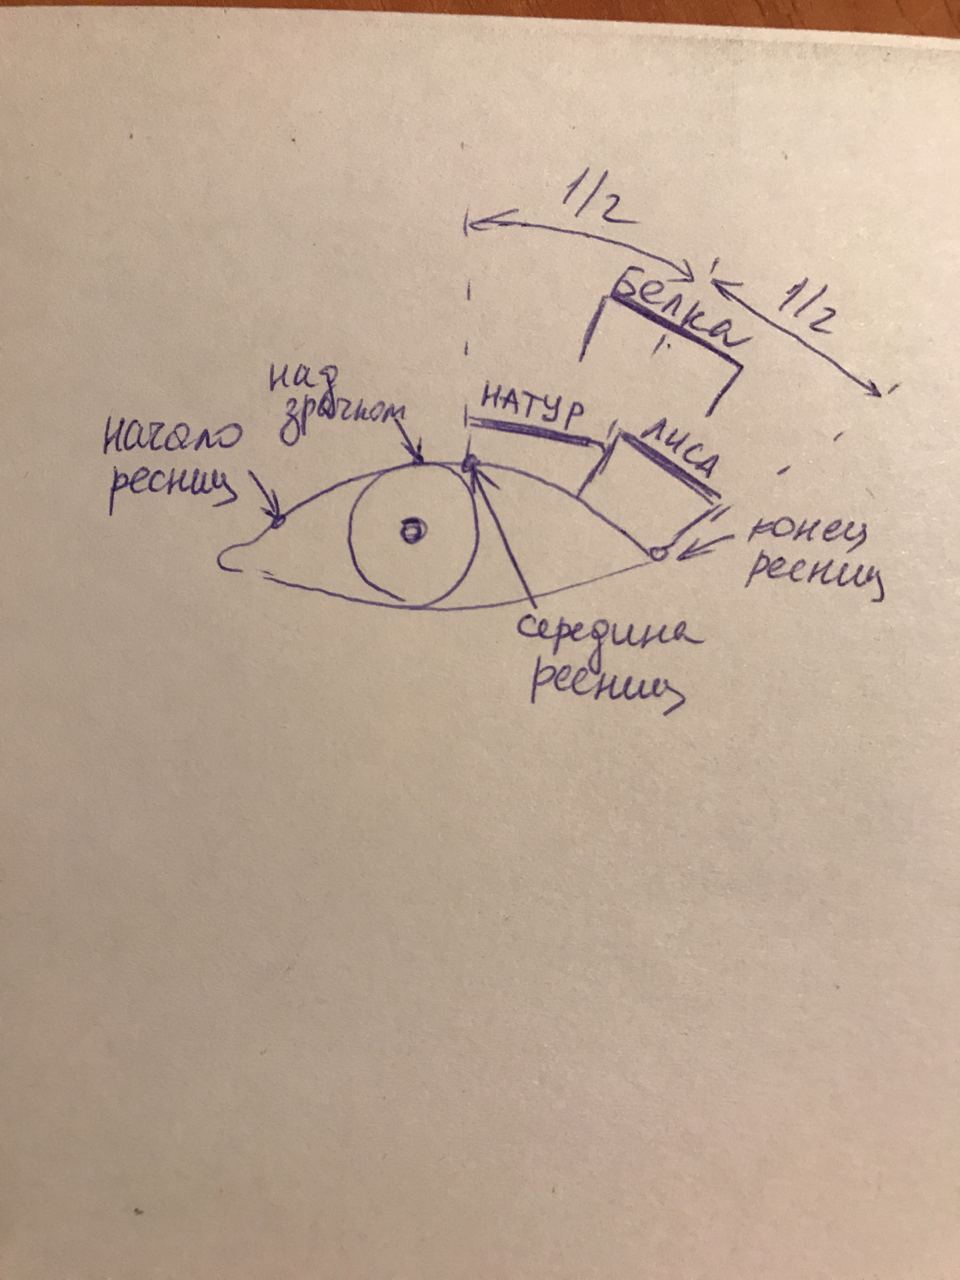 1/2
1/2
Белка
НАТУР
ЛИСА
над
зрачком
начало
ресниц
конец
ресниц
середина
ресниц